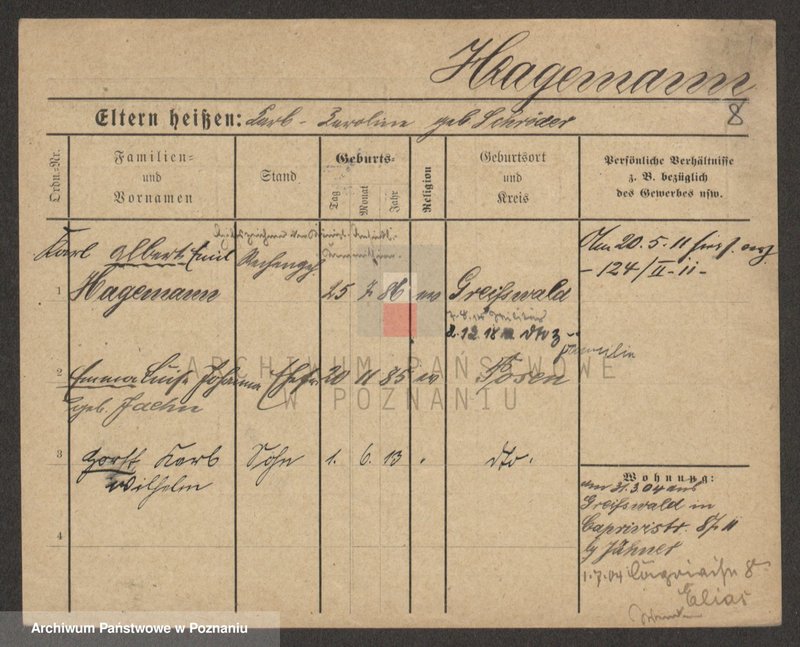 Hagemann
8
Eltern heißen: Karl - Karoline geb Schröder
Ordn.-Nr.
Familien-
und
Vornamen
Stand
Geburts-
Tag
Monat
Jahr
Religion
Geburtsort
und
Kreis
Persönliche Verhältnisse
z. B. bezüglich
des Gewerbes usw.
Karl Albert Emil
1 Hagemann 25 7 86 ev Greifswald
Am 20.5.11
-124/II-11-
2.12.18 dto z
Familie
2 Emma Luise Johanna Ehefr 20 11 85 ev Posen
geb. Jaehn
3 Horst Karl Sohn 1. 6. 13 dto.
Wilhelm
4
Wohnung:
am 31.3.04 aus
Greifswald in
Caprivistr. 8/II
Jähner
1.7.04 8
Elias
ARCHIWUM PAŃSTWOWE
W POZNANIU
Archiwum Państwowe w Poznaniu